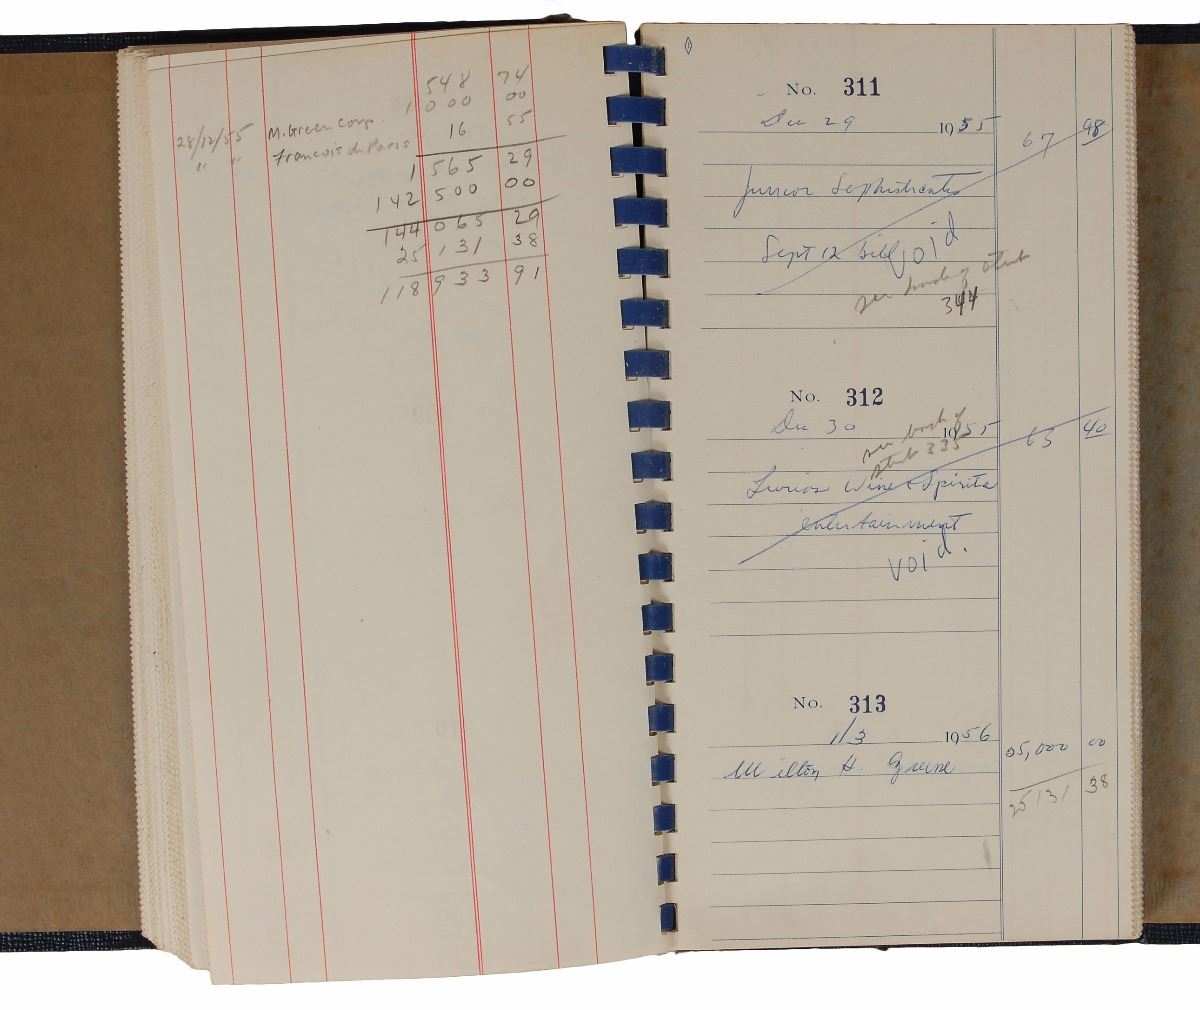 548 74
1 000 00
28/12/55 M. Green Comp. 16 55
" " Francois de Paris
1 565 29
142 500 00
144 065 29
25 131 38
118 933 91
No. 311
Dec 29 1955 67 98
Junior Sophisticates
Sept 12 bill void
see back of stub
344
No. 312
Dec 30 1955 63 40
see back of
stub 335
Wine & Spirits
entertainment
void.
No. 313
1/3 1956
Milton H. Greene 25,000 00
25131 38